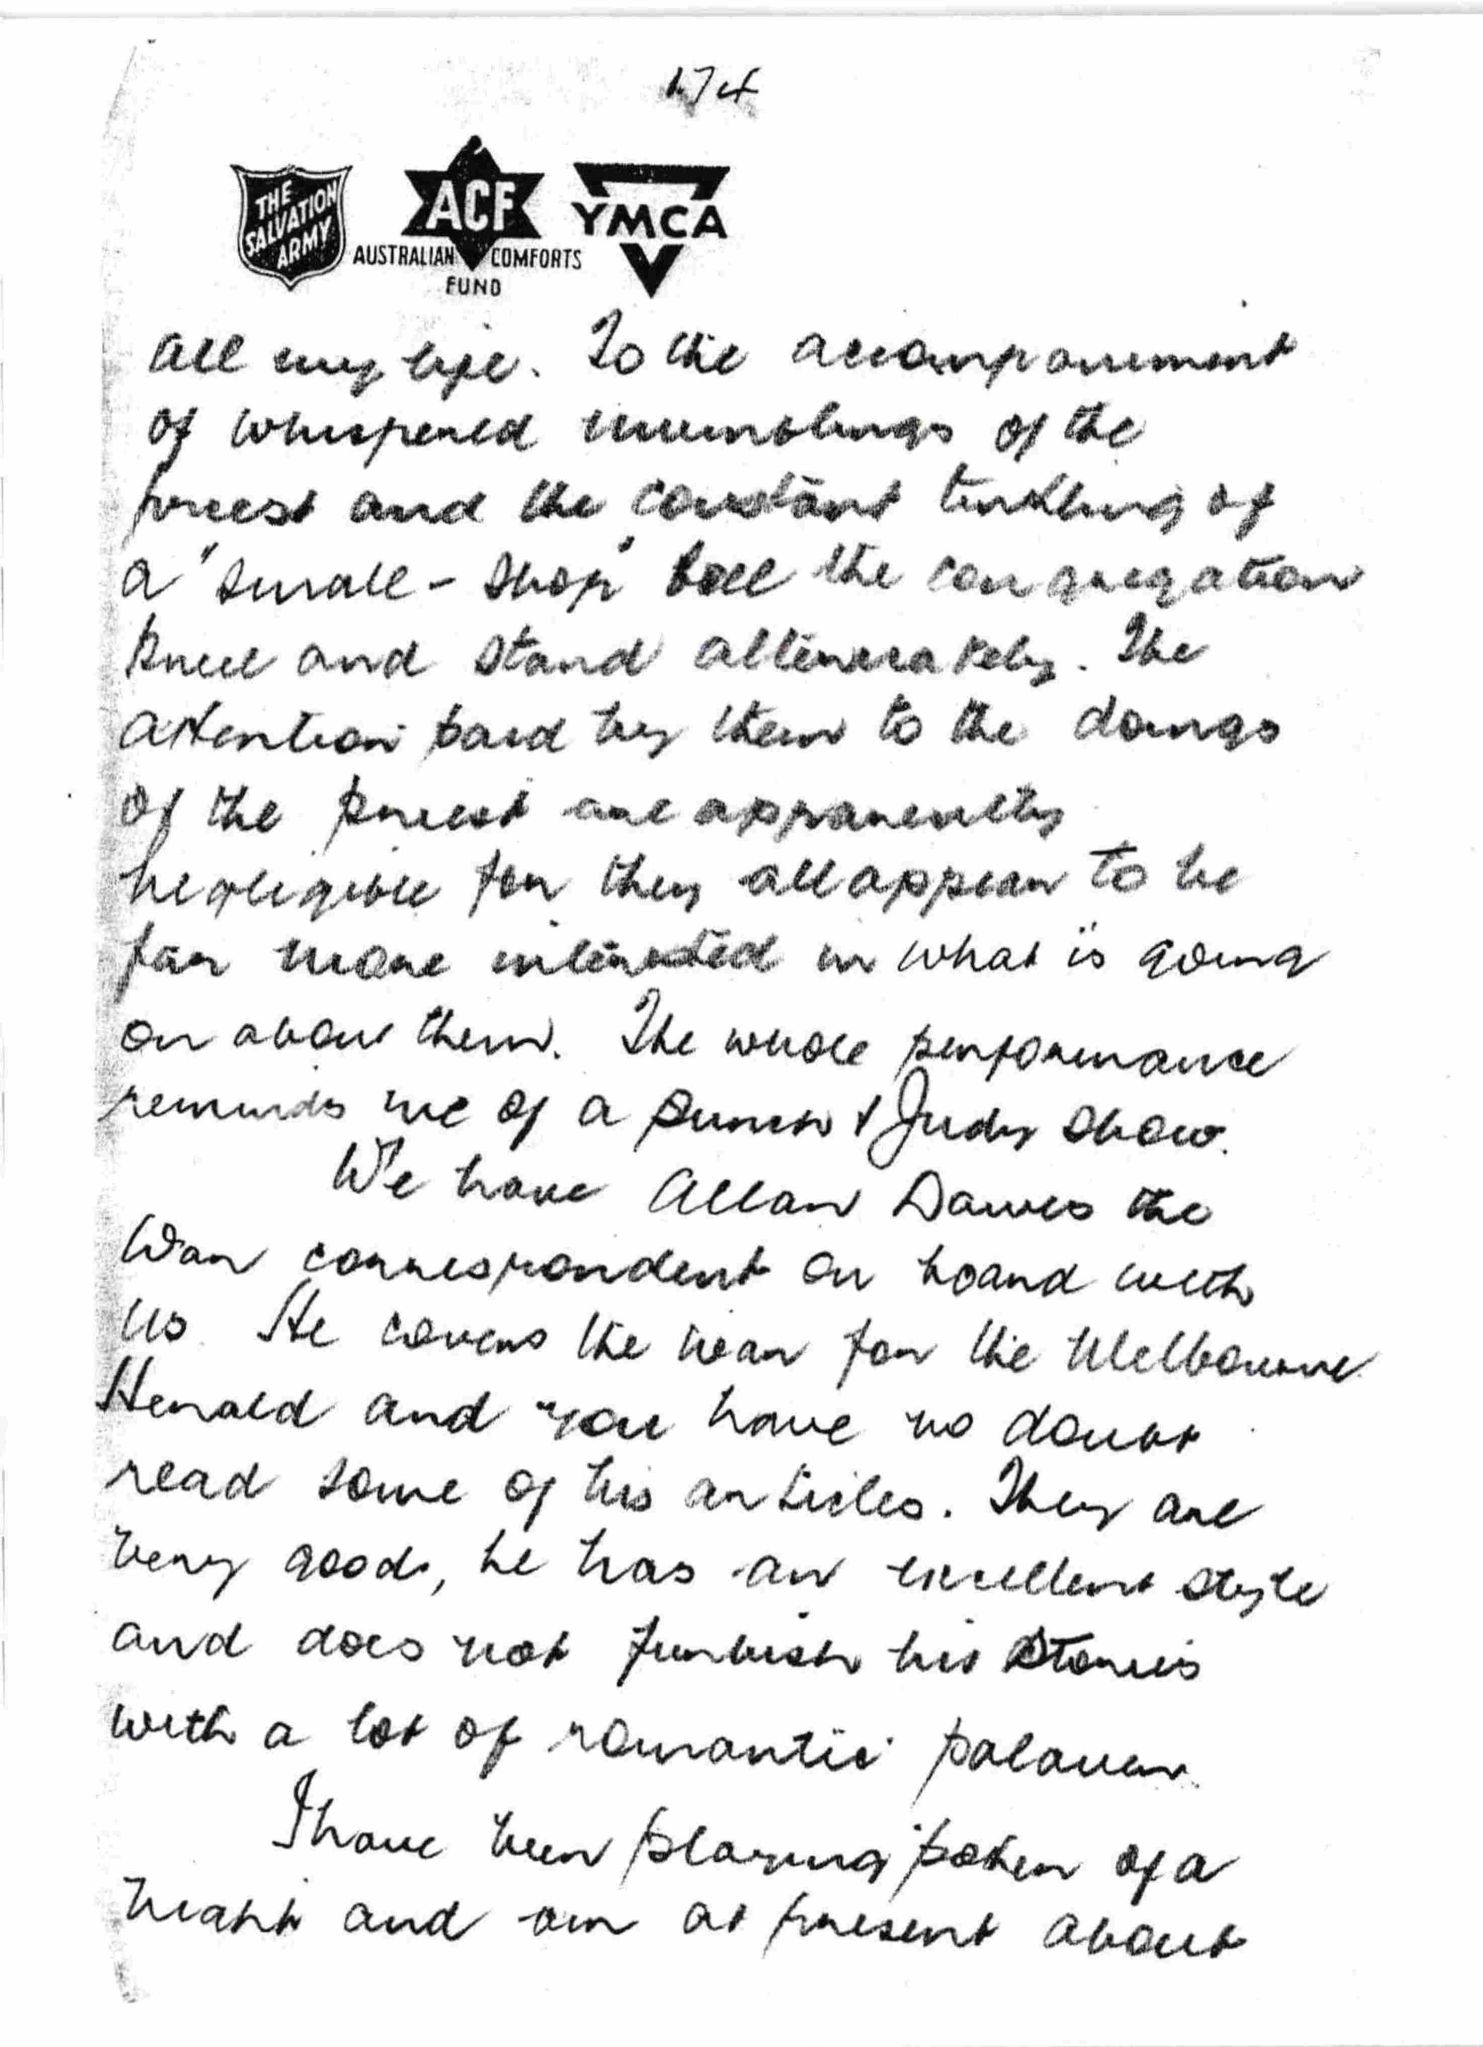 174
THE SALVATION ARMY
ACF
AUSTRALIAN COMFORTS
FUND
YMCA
all my life. To the accompaniment
of whispered mumblings of the
priest and the constant tinkling of
a "small-shop" bell the congregation
kneel and stand alternately. The
attention paid by them to the doings
of the priest are apparently
negligible for they all appear to be
far more interested in what is going
on about them. The whole performance
reminds me of a Punch & Judy show.
We have Allan Dawes the
War correspondent on board with
us. He covers the war for the Melbourne
Herald and you have no doubt
read some of his articles. They are
very good, he has an excellent style
and does not furbish his stories
with a lot of romantic palaver.
I have been playing poker of a
night and am at present about